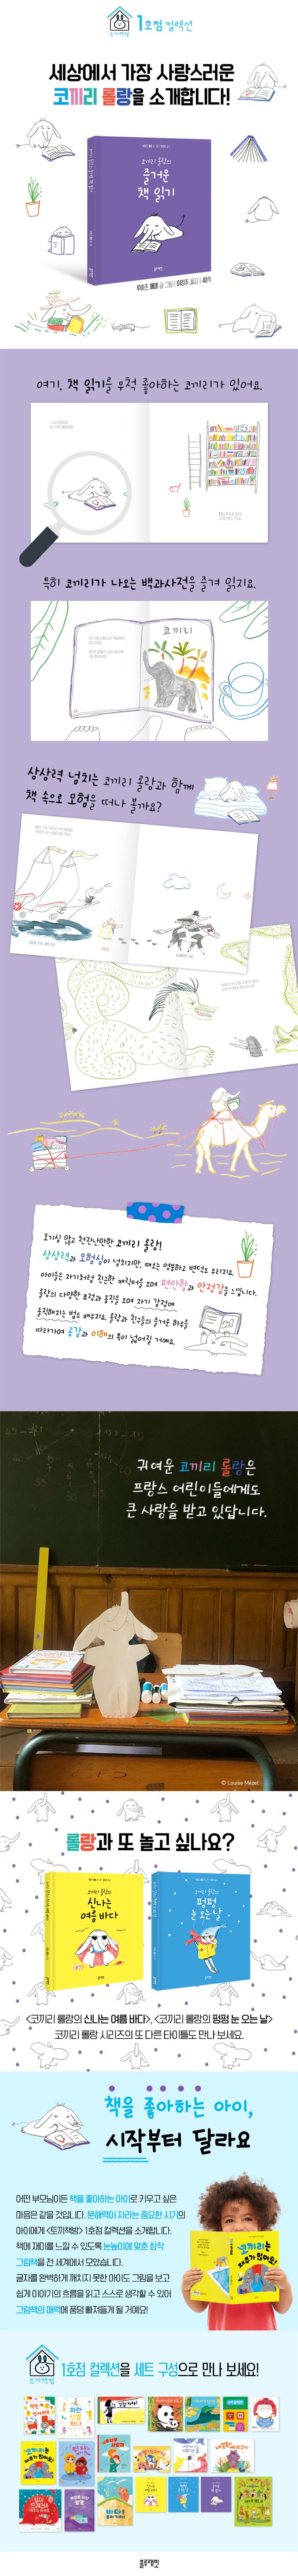 토끼책방
1호점 컬렉션
세상에서 가장 사랑스러운
코끼리 롤랑을 소개합니다!
코끼리 롤랑의
즐거운
책 읽기
루이즈 메젤 글·그림
여기, 책 읽기를 무척 좋아하는 코끼리가 있어요.
특히 코끼리가 나오는 백과사전을 즐겨 읽지요.
코끼리
상상력 넘치는 코끼리 롤랑과 함께
책 속으로 모험을 떠나 볼까요?
꾸밈 않고 천진난만한 코끼리 롤랑!
상상력과 모험심이 넘치지만, 때로는 엉뚱하고 변덕도 부리지요.
아이들은 자기처럼 친근한 캐릭터를 보며 편안함과 안정감을 느낍니다.
롤랑의 다양한 표정과 몸짓을 보며 자기 감정에
솔직해지는 법도 배우지요. 롤랑과 친구들의 즐거운 하루를
따라가며 공감과 이해의 폭이 넓어질 거예요.
귀여운 코끼리 롤랑은
프랑스 어린이들에게도
큰 사랑을 받고 있답니다.
© Louise Mézel
롤랑과 또 놀고 싶나요?
코끼리 롤랑의
신나는
여름 바다
코끼리 롤랑의
펑펑
눈 오는 날
<코끼리 롤랑의 신나는 여름 바다>, <코끼리 롤랑의 펑펑 눈 오는 날>
코끼리 롤랑 시리즈의 또 다른 타이틀도 만나 보세요.
책을 좋아하는 아이,
시작부터 달라요
어떤 부모님이든 책을 좋아하는 아이로 키우고 싶은
마음은 같을 것입니다. 문해력이 자라는 중요한 시기의
아이에게 <토끼책방> 1호점 컬렉션을 소개합니다.
책에 재미를 느낄 수 있도록 눈높이에 맞춘 창작
그림책을 전 세계에서 모았습니다.
글자를 완벽하게 깨치지 못한 아이도 그림을 보고
쉽게 이야기의 흐름을 읽고 스스로 생각할 수 있어
그림책의 매력에 풍덩 빠져들게 될 거예요!
코끼리는
재주가 많아요!
토끼책방
1호점 컬렉션을 세트 구성으로 만나 보세요!
블루래빗